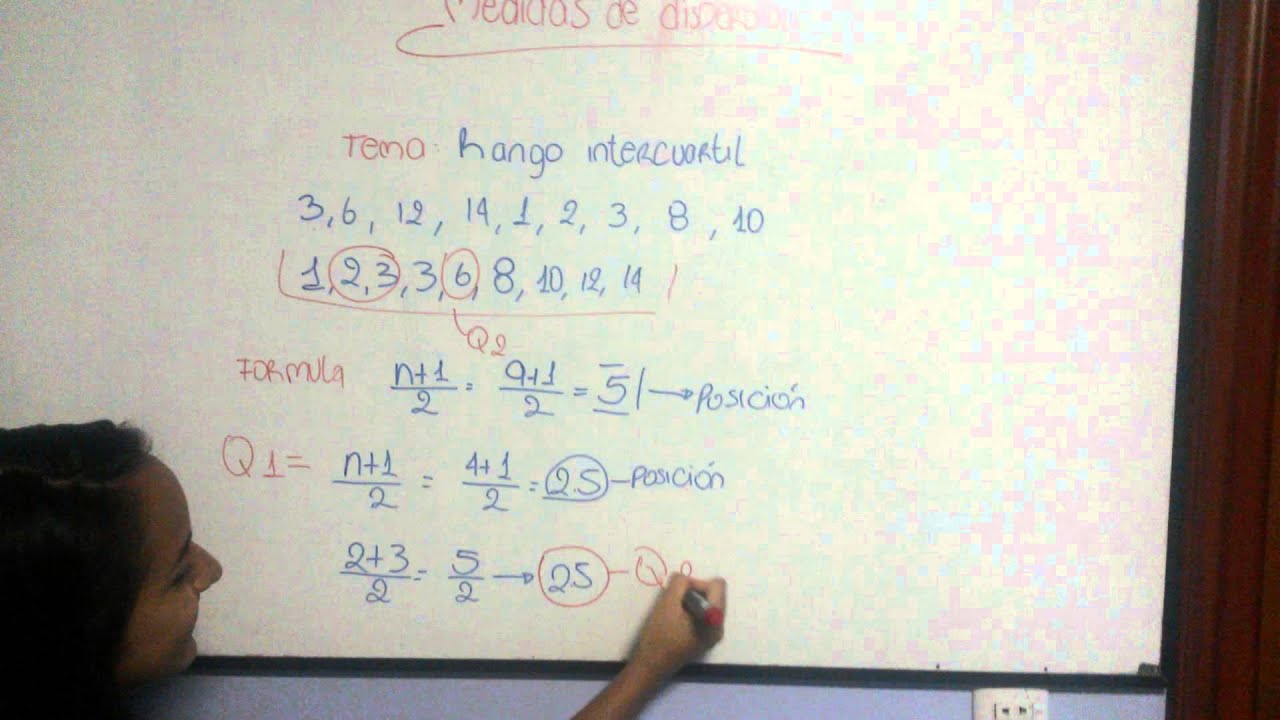 Medidas de dispersión
Tema: Rango intercuartil
3, 6, 12, 14, 1, 2, 3, 8, 10
1, 2, 3, 3, 6, 8, 10, 12, 14
Q2
FORMULA n+1/2 = 9+1/2 = 5 → Posición
Q1 = n+1/2 = 4+1/2 = 2.5 – Posición
2+3/2 = 5/2 → 2.5 – Q